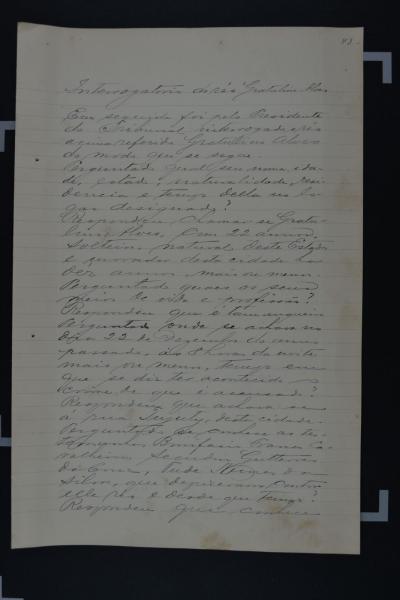 43
Interrogatorio do réo Gratulino Alves
Em seguida foi pelo Presidente
do Tribunal interrogado o réo
acima referido Gratulino Alves
do modo que se segue.
Perguntado qual seu nome, ida-
de, estado, naturalidade, resi-
dencia e tempo della no lu-
gar designado?
Respondeu chamar-se Gratu-
lino Alves, com 22 annos,
solteiro, natural deste Estado
e morador desta cidade ha
dez annos, mais ou menos.
Perguntado quaes os seus
meios de vida e profissão?
Respondeu que é
Perguntado onde se achava no
dia 22 de Dezembro do anno
passado, ás 8 horas da noite
mais ou menos, tempo em
que se diz ter acontecido o
crime de que é accusado?
Respondeu que achava-se
á rua desta cidade.
Perguntado se conhece as tes-
temunhas Bonifacio
Secundino Gutterres
da Cruz, da
Silva, que depuzeram contra
elle réo e desde que tempo?
Respondeu que conhece